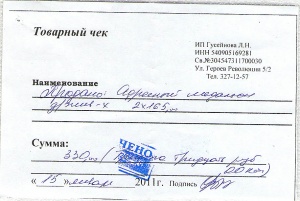 Товарный чек
ИП Гусейнова Л.Н.
ИНН 540905169281
Св.№304547311700030
Ул. Героев Революции 5/2
Тел. 327-12-57
Наименование
Продано: Адресной медальон
2x165,00
Сумма:
330,00 (Триста тридцать руб
00 коп)
ЧЕНО
"15" января 2011г. Подпись